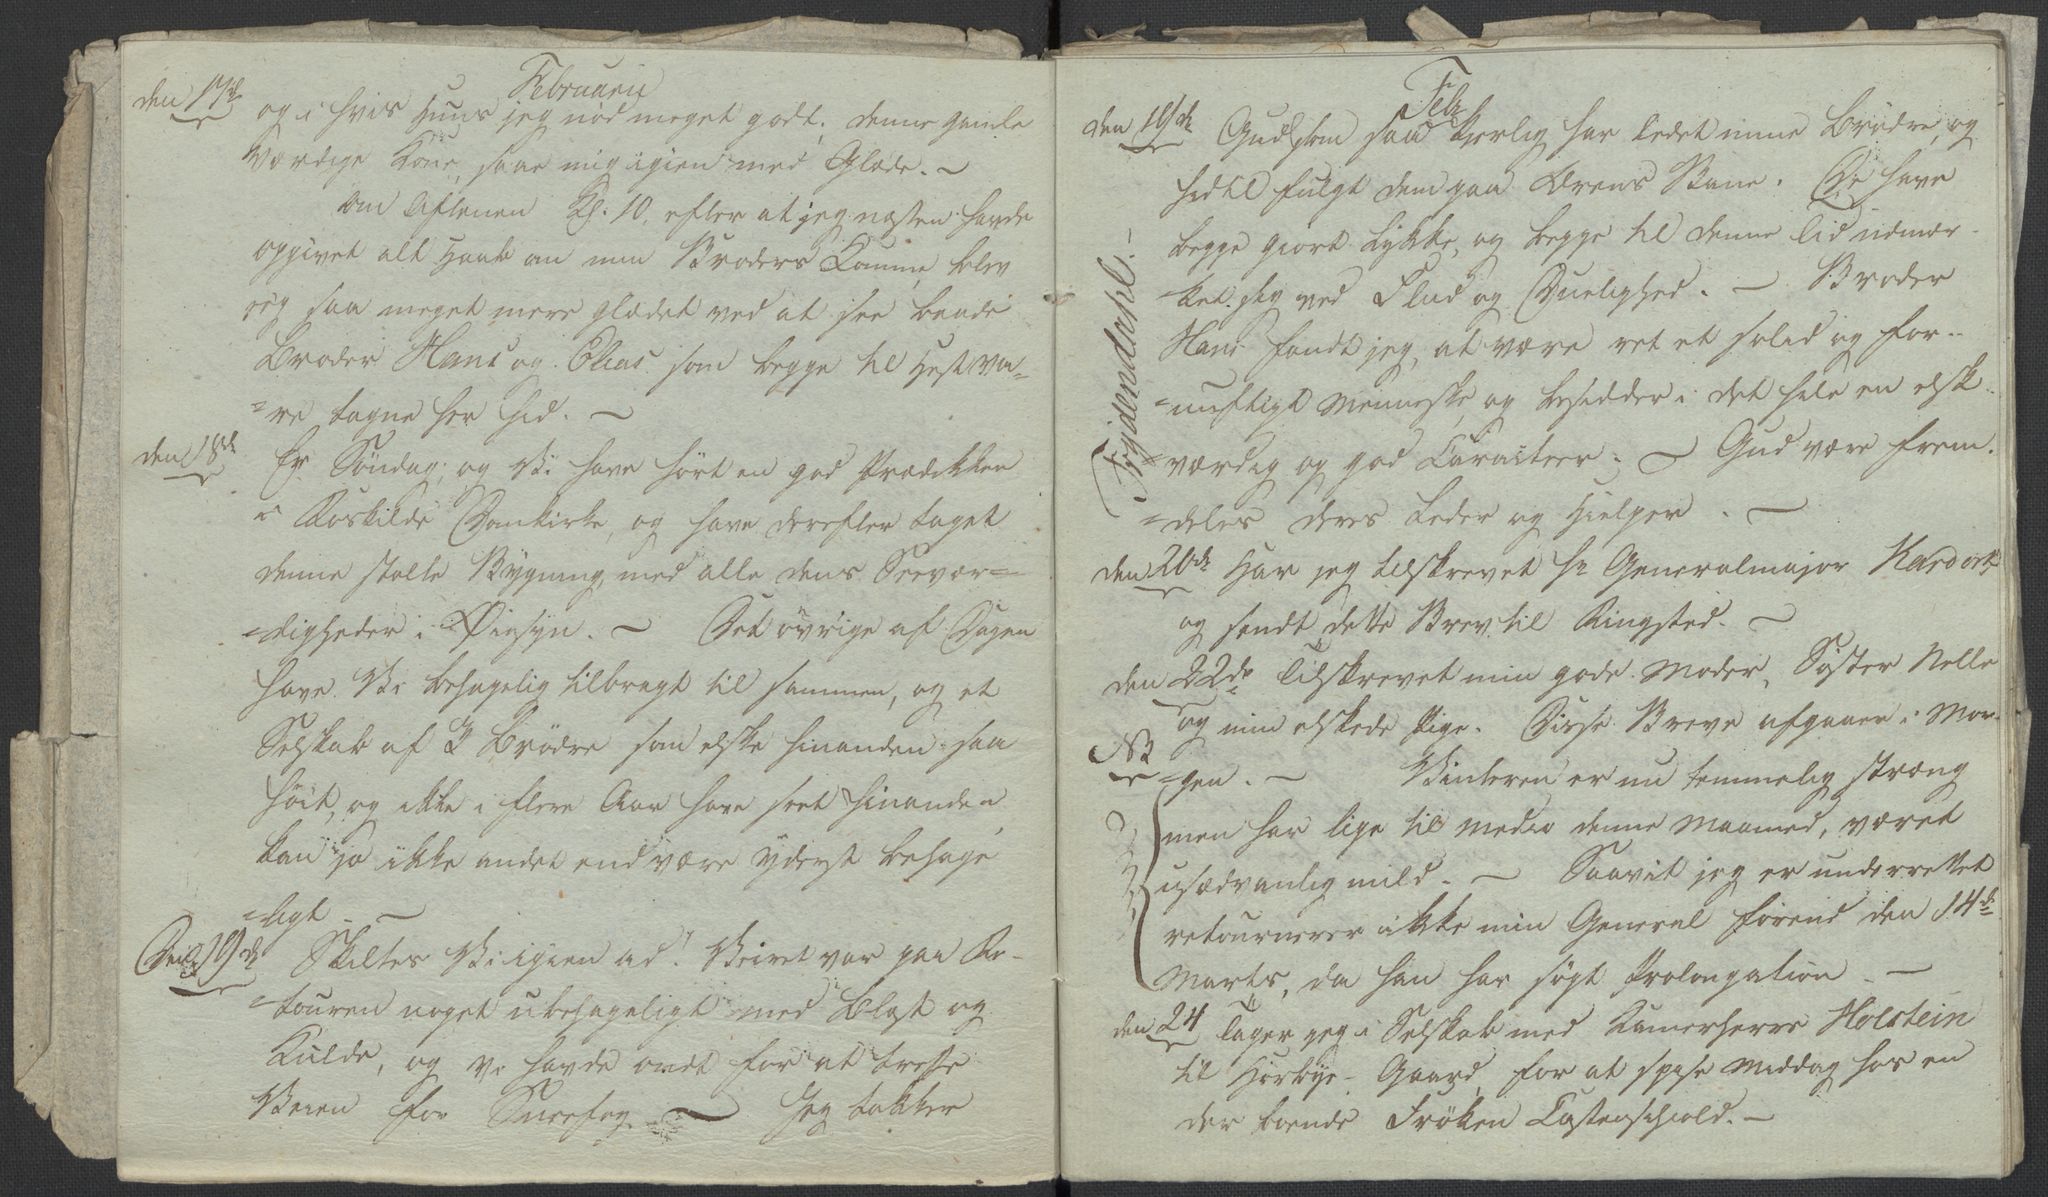 Februarii
den 17de og i hvis Huus jeg nød meget godt; denne gamle
værdige Kone, saae mig igien med Glæde. –
Om Aftenen Kl. 10, efter at jeg næsten havde
opgivet alt Haab om min Broders Komme, blev
jeg saa meget mere glædet ved at see baade
Broder Hans og Elias som begge til Hest va=
=re tagne her hid. –
den 18de Er Søndag, og Vi have hørt en god Prædikken
i Roskilde Domkirke, og have derefter taget
denne stolte Bygning med alle dens Seevær=
=digheder i Øiesyn. – Det øvrige af Dagen
have Vi behagelig tilbragt til sammen, og et
Selskab af 3 Brødre som elske hinanden saa
høit, og ikke i flere Aar have seet hinanden
kan jo ikke andet end være yderst behage
=ligt. –
Den 19de Skiltes Vi igien ad! Veiret var paa Re-
=touren noget ubehageligt med Blæst og
Kulde, og vi havde ondt for at treffe
Veien for Sneefog. – Jeg takker
Febr
den 19de Gud som saa kjerlig har ledet mine Brødre, og
hidtil fulgt dem paa Ærens Bane. De have
begge giort Lykke, og begge til denne Tid udmær-
ket sig ved Flid og Duelighed. – Broder
Hans fandt jeg, at være ret et solid og for-
=nuftigt Menneske, og besidder i det hele en elsk-
=værdig og god Caracteer. – Gud være frem-
=deles deres Leder og Hielper. –
Frydendahl!
den 20de Har jeg tilskrevet Hr Generalmajor Kardorff
og sendt dette Brev til Ringsted. –
den 22de Tilskrevet min gode Moder, Søster Nelle
og min elskede Pige. Disse Breve afgaaer i Mor-
NB =gen. – Vinteren er nu temmelig streng
men har lige til medio denne Maaned, været
usædvanlig mild. – Saavit jeg er underrettet
retournerer ikke min General førend den 14de
Marts, da han har søgt Prolongation. –
den 24 Tager jeg i Selskab med Kamerherre Holstein
til Hørbye-Gaard, for at spise Middag hos en
der boende Frøken Castenschiold. –